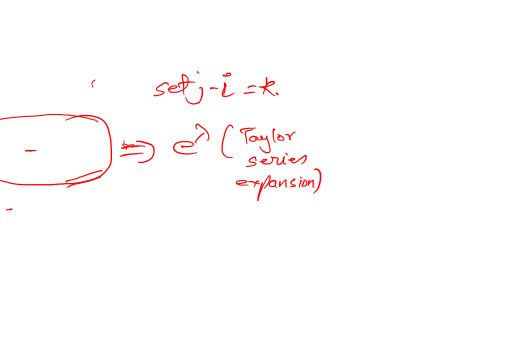 set j-i = k.
⇒ e^λ (Taylor
series
expansion)